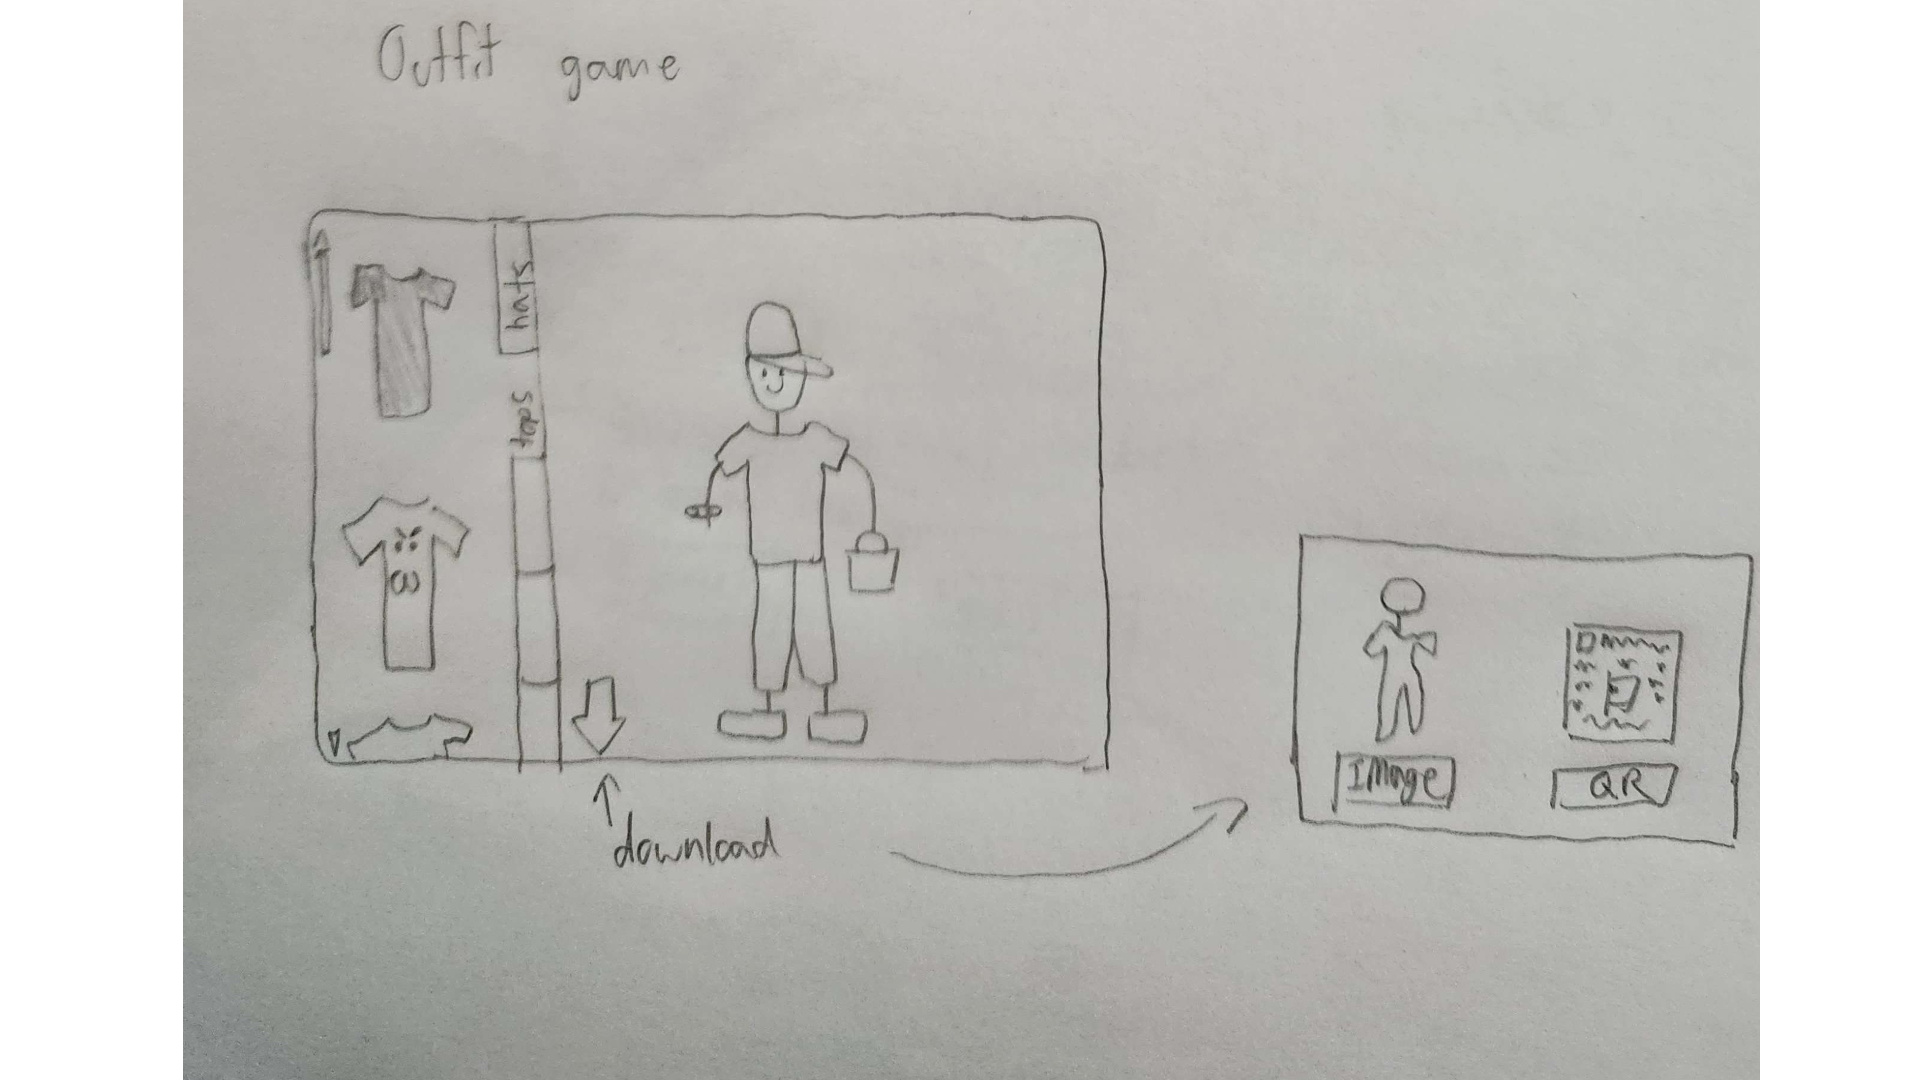 Outfit game
hats
tops
download
IMage
QR